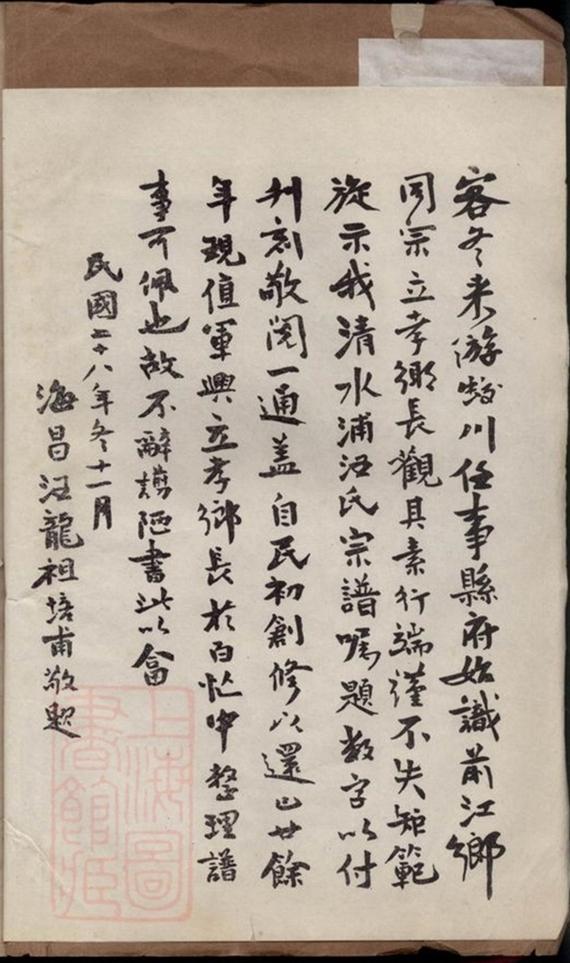 客冬来游蛟川任事縣府始識前江鄉
同宗立孝鄉長觀其素行端謹不失矩範
旋示我清水浦汪氏宗譜囑題数字以付
刊刻敬閱一通蓋自民初創修以還已廿餘
年現值軍興立孝鄉長於百忙中整理譜
事可佩也故不辭譾陋書此以畣
民國二十八年冬十一月
海昌汪龍祖培甫敬題
上海圖
書館藏